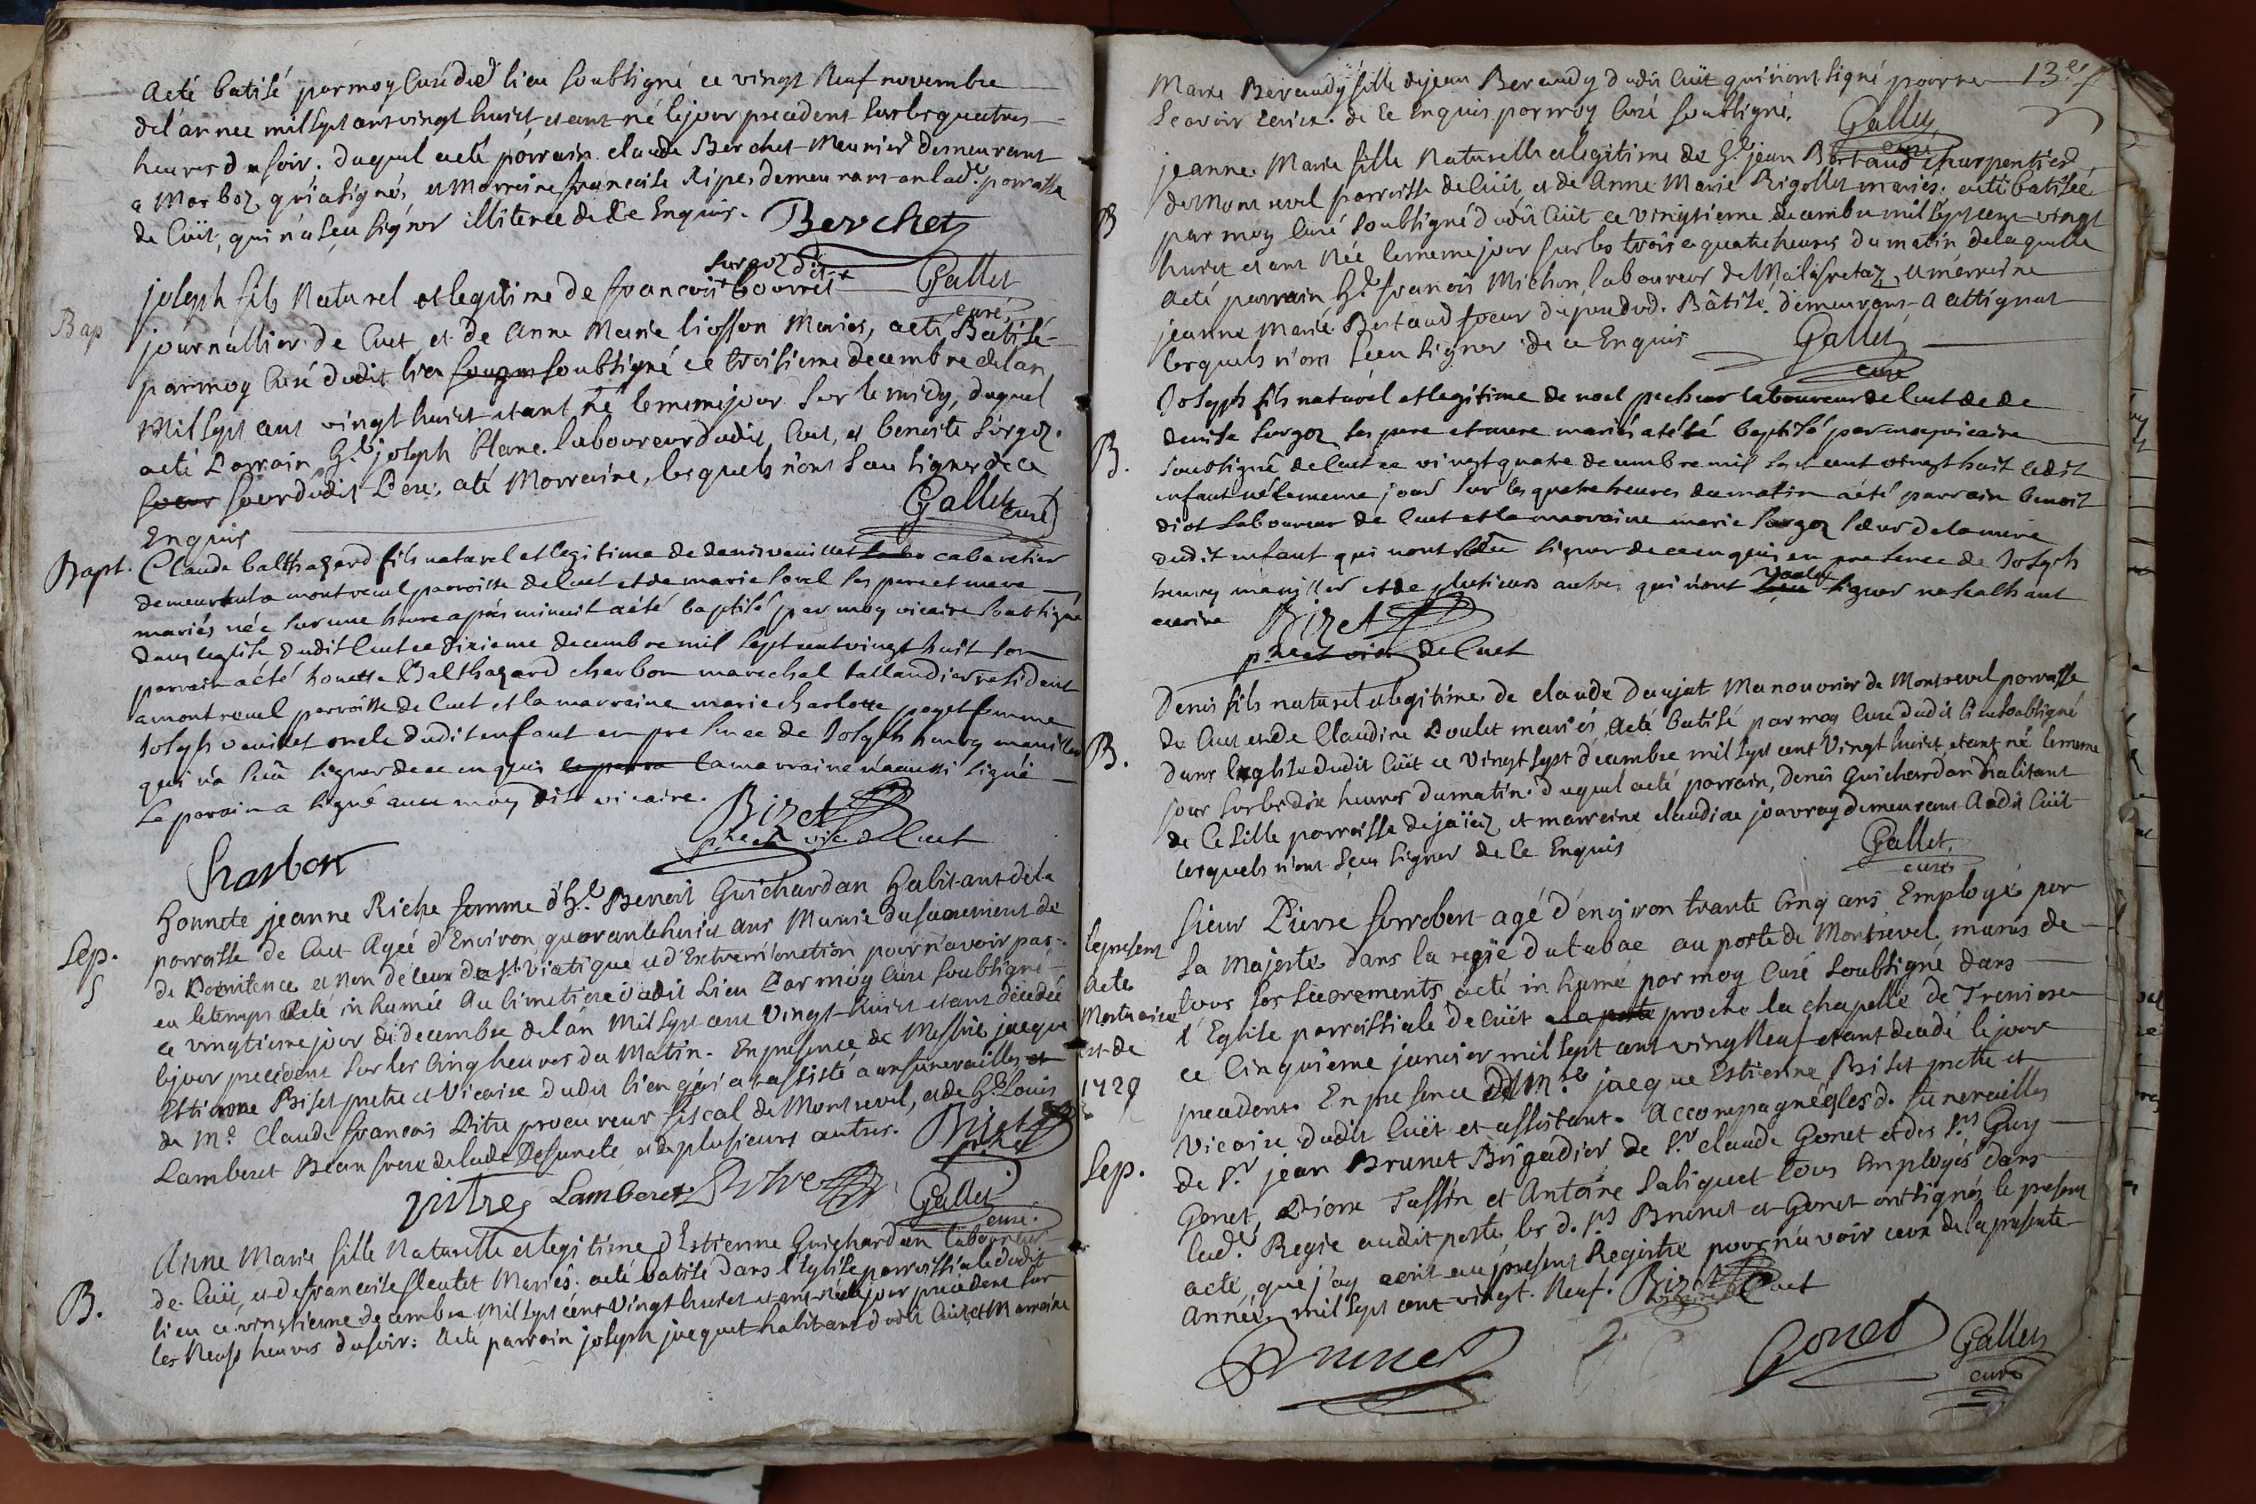 acté batisé par moy Curé dud. lieu soubsigné ce vingt Neuf novembre
de l'année mil sept cent vingt huict etant né le jour precedent sur les quatres
heures du soir. duquel acté parrain claude Berchet Meunier demeurant
a Marboz, qui a signé, et Marreine francoise Ripe, demeurant en lad. parroisse
de Cüit, qui n'a sçeu signer illiterée de Ce Enquis. Berchet
Gallet
curé
Bap
surgoz dit
joseph fils Naturel et legitime de francois bourret
journallier de Cuet et de Anne Marie liosson Mariés, acté Batisé
par moy Curé dudit lieu soubsigné ce troisieme decembre de l'an
Mil sept cent vingt huict etant né le meme jour sur le midy, duquel
acté Parrain h.le joseph blanc laboureur dudit Cuet, et benoite surgoz
sœur sœur dudit Pere, até Marraine, lesquels n'ont sceu signer de ce
Enquis
Gallet curé
Bapt. Claude balthazard fils naturel et legitime de denis veuillet cabaretier
demeurant a montrevel parroisse de Cuet et de marie sorel ses pere et mere
mariés née sur une heure aprés minuit a été baptisé par moy vicaire soubsigné
dans l'eglise dudit Cuet ce dixieme decembre mil sept cent vingt huit son
parrain a été honeste Balthazard charbon marechal taillandier residant
a montrevel parroisse de Cuet et la marraine marie charlotte poget femme
Joseph veuillet oncle dudit enfant en presence de Joseph henry manillier
qui n'a sceu signer de ce enquis la marraine n'a aussi signé
Le parain a signé avec moy dit vicaire. Bizet
p.re et vic. de Cuet
Charbon
Sep.
Honnete jeanne Riche femme d'h.le Benoit Guichardan habitant de la
parroisse de Cuet Agée d'Environ quarante huict ans Munie du sacrement de
de Penitence et Non de ceux de st Viatique et d'Extremionction pour n'avoir pas
eu le temps a eté inhumée au Cimetiere dudit Lieu Par moy Curé soubsigné
ce vingtieme jour de decembre de l'an Mil sept cent Vingt-huict etant decedée
le jour precedent sur les Cinq heures du Matin. En presence de Messire jacque
Estienne Biset pretre et Vicaire dudit lieu qui a assisté a ses funerailles, et
de M.e Claude francois Pitre procureur fiscal de Montrevel, et de h.le Louis
Lamberet Beau frere de lade. Defuncte et de plusieurs autres. Bizet
p.re
pitre Lamberet
Gallet
curé
B.
Anne Marie fille Naturelle et legitime d'Estienne Guichardan laboureur
de Cüit, et de francoise fleutet Mariés. acté batisé dans l'Eglise parroissiale dudit
lieu ce vingtieme decembre mil sept cent vingt huict etant née le jour precedent sur
les Neufs heures du soir: acté parrain joseph jacquet habitant dudit Cuit et Marraine
13.e
Marie Beraudy fille de jean Beraudy dudit Cüit qui n'ont signé pour ne
Scavoir ecrire. de ce Enquis par moy Curé soubsigné.
Gallet
curé
B
jeanne Marie fille Naturelle et legitime de h.le jean Bertaud charpentier
de Montrevel parroisse de Cüit et de Anne Marie Rigollet mariés. acté batisée
par moy Curé soubsigné dudit Cüit ce vingtieme decembre mil sept cent vingt
huict etant Née le meme jour sur les trois a quatre heures du matin de laquelle
acté parrain h.le francois Michon laboureur de Malafretaz, et mareine
jeanne Marie Bertaud sœur de jeud. Bâtisé, demeurant a attignat
lesquels n'ont sceu signer de ce Enquis
Gallet
curé
B.
Joseph fils naturel et legitime de noel pecheur laboureur de Cuet de de
denise surgoz ses pere et mere mariés a été baptisé par moy vicaire
soubsigné de Cuet ce vingt quatre decembre mil sept cent vingt huit ledit
enfant né le meme jour sur les quatre heures du matin a été parrain benoit
diot laboureur de Cuet et la marraine marie surgoz sœur de la mere
dudit enfant qui nont sceu signer de ce enquis en presence de Joseph
henry manillier et de plusieurs autres qui n'ont voulu signer ne sealhant
ecrire Bizet
p.re et vic. de Cuet
B.
Denis fils naturel et legitime de claude Daujat Manouvrier de Montrevel parroisse
de Cuet et de Claudine Poulet mariés, acté batisé par moy Curé dudit lieu soubsigné
dans l'eglise dudit Cüit ce Vingt sept decembre mil sept cent Vingt huict, etant né le meme
jour sur les dix heures du matin. duquel acté parrain, denis Guichardan habitant
de Cesille parroisse de jaïez, et marreine claudine jouvray demeurant Audit Cüit
lesquels n'ont sçeu signer de Ce Enquis
Gallet
curé
le present
Acte
Mortuaire
est de
1729
Sep.
Sieur Pierre forrobert agé d'environ trante Cinq ans Employé par
sa Majesté dans la regie du tabac au poste de Montrevel, munis de
tous ses sacrements acté inhumé par moy Curé soubsigné dans
l'Eglise parroissiale de Cüit a la porte proche la chapelle de
ce Cinquieme janvier mil sept cent vingt Neuf etant decedé le jour
precedent. En presence de M.re jacque Estienne Biset pretre et
vicaire dudit Cuit et assistant. Accompagné lesd. funerailles
de s.r jean Brunet Brigadier de s.r claude Gonet et des s.rs Guy
Gonet, Pierre Tassin et Antoine Saliquet tous Employés dans
lad.e Regie audit poste, les d. s.rs Brunet et Gonet ont signés le present
acte, que j'ay ecrit au present Registre pour n'avoir ceux de la presente
Année mil sept cent vingt. Neuf. Bizet
vicaire de Cuet
Brunet
Gonet
Gallet
curé